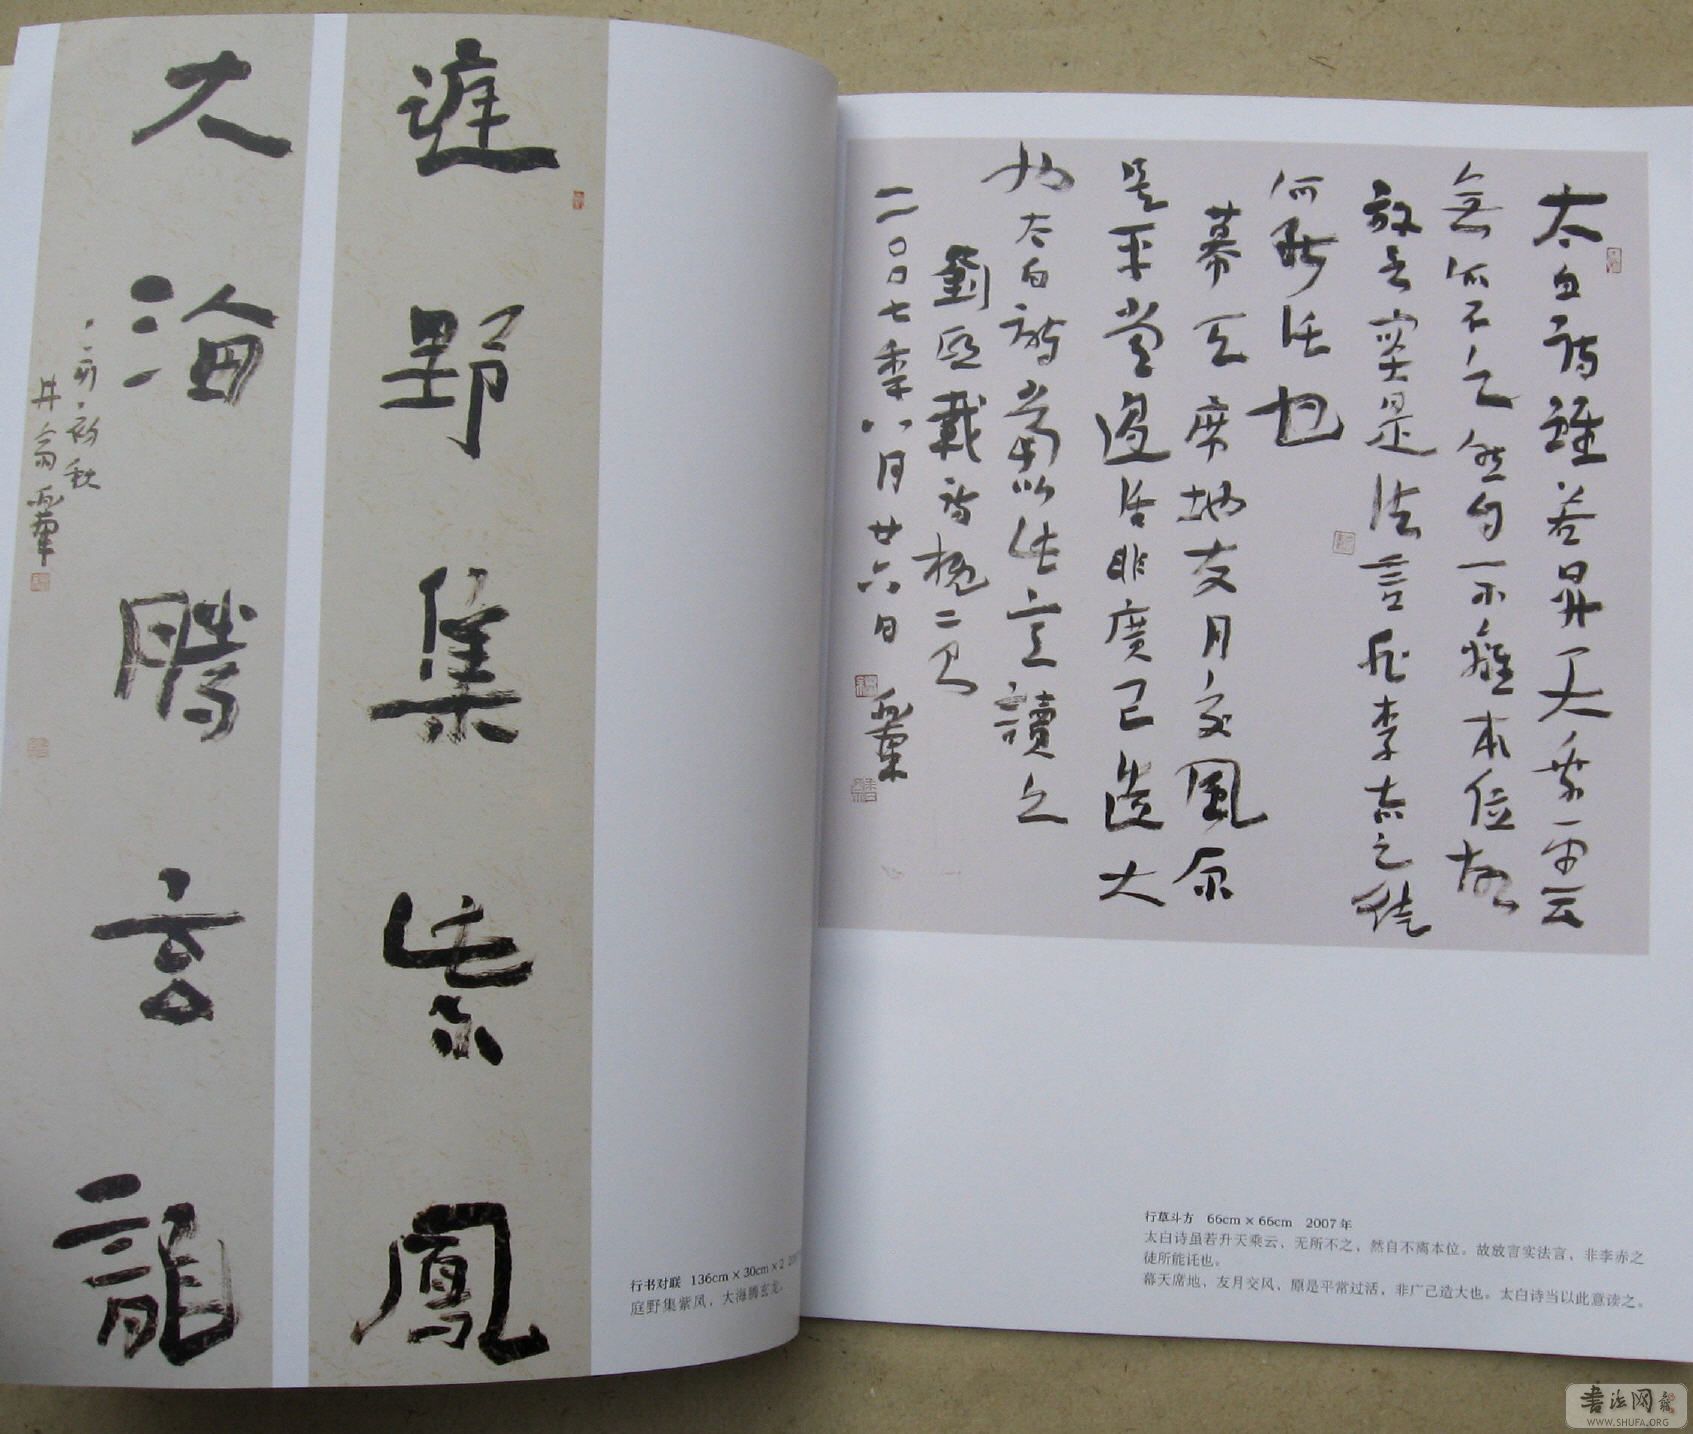 庭野集紫鳳
大海騰玄龍
初秋
太白詩雖若昇天乘雲
無所不之然自不離本位故
放言實是法言非李赤之徒
所能託也
幕天席地友月交風原
是平常過活非廣己造大
也太白詩當以此意讀之
劉熙載詩概二則
二〇〇七年八月廿六日
行书对联 136cm×30cm×2
庭野集紫凤,大海腾玄龙。
行草斗方 66cm×66cm 2007年
太白诗虽若升天乘云,无所不之,然自不离本位。故放言实法言,非李赤之
徒所能讬也。
幕天席地,友月交风,原是平常过活,非广己造大也。太白诗当以此意读之。
書法网
WWW.SHUFA.ORG